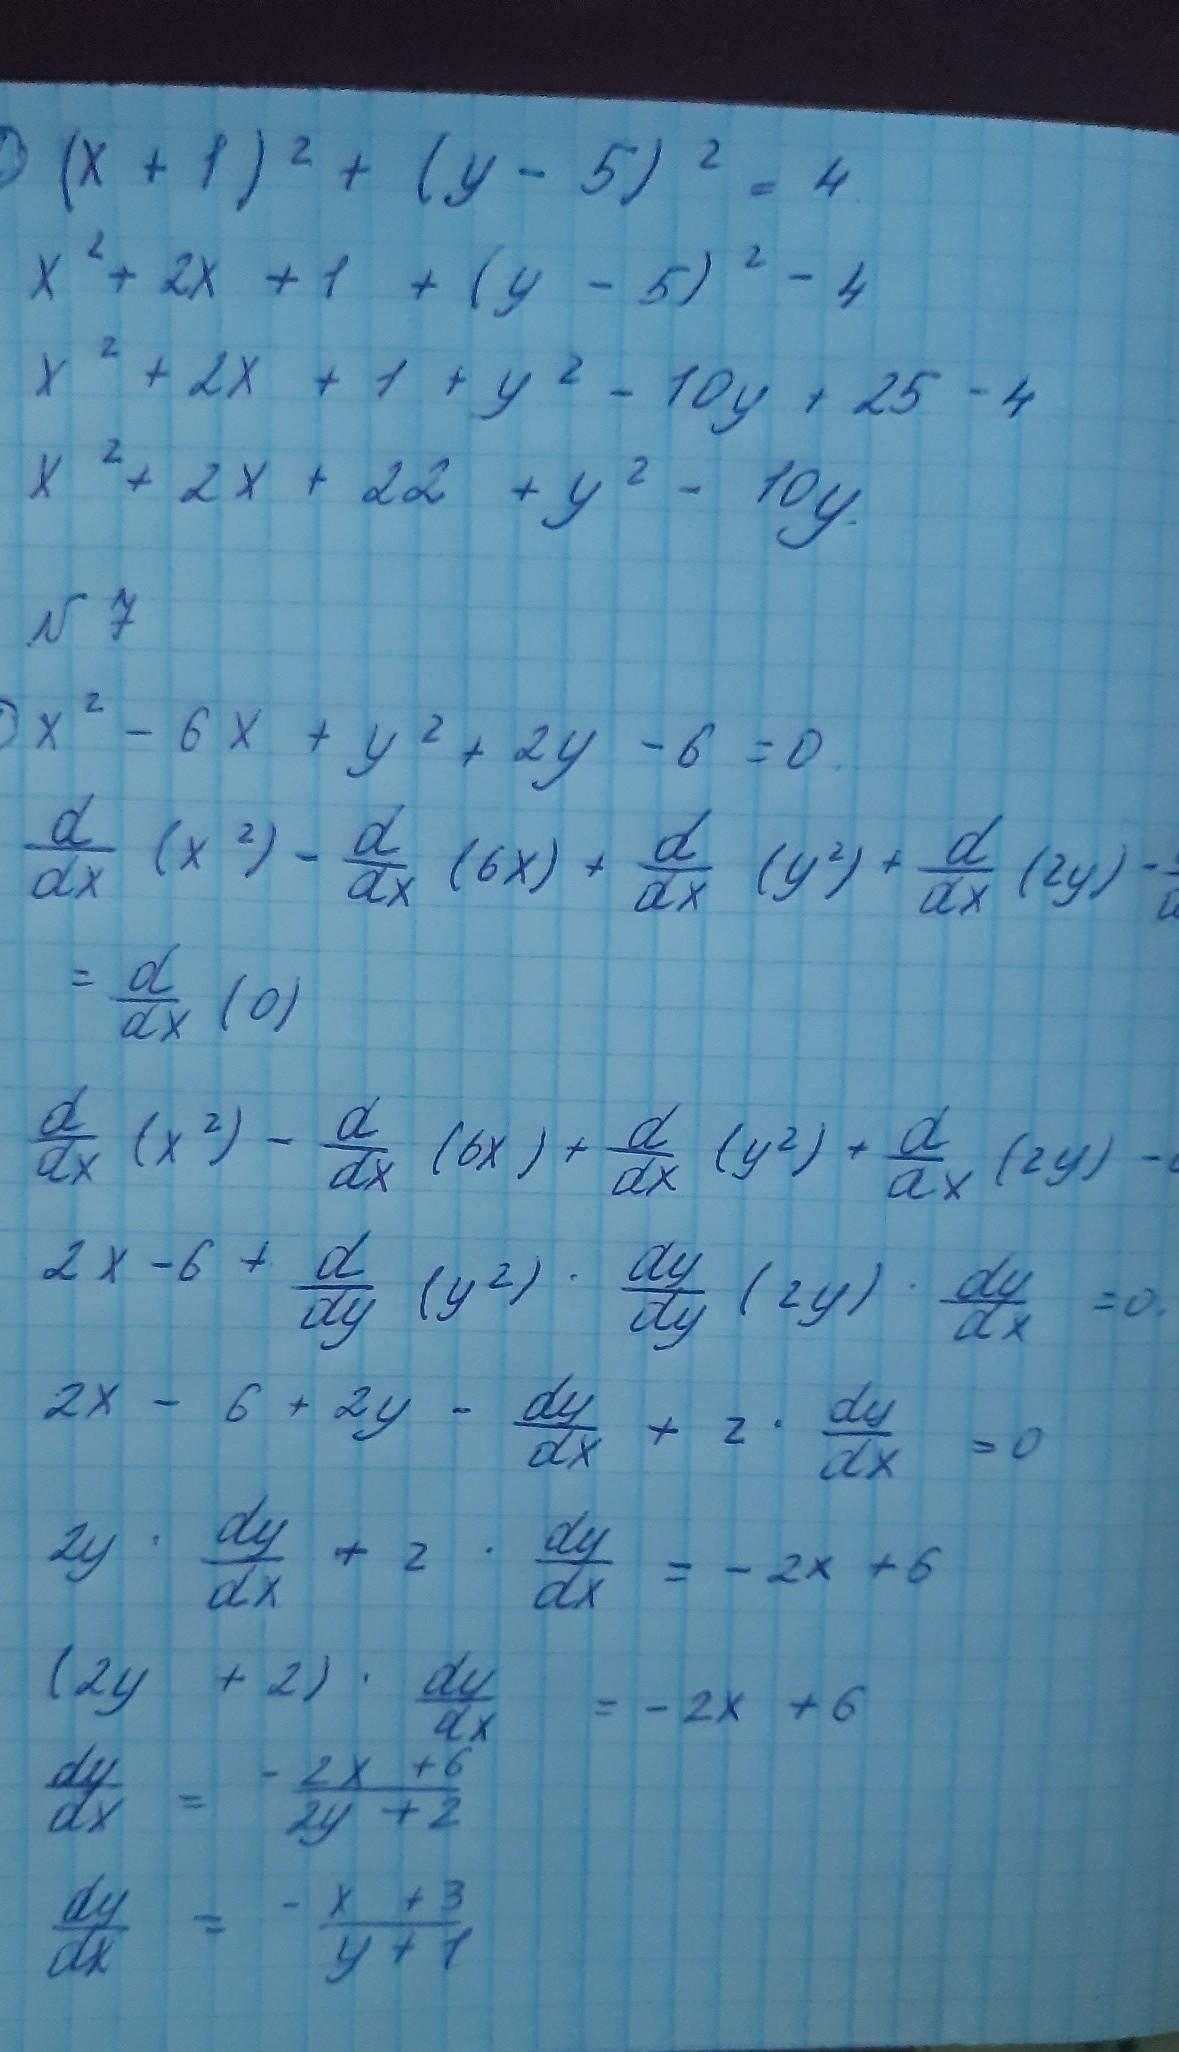 (x + 1)² + (y - 5)² = 4
x² + 2x + 1 + (y - 5)² - 4
x² + 2x + 1 + y² - 10y + 25 - 4
x² + 2x + 22 + y² - 10y.
N 7
x² - 6x + y² + 2y - 6 = 0.
d/dx (x²) - d/dx (6x) + d/dx (y²) + d/dx (2y) -
= d/dx (0)
d/dx (x²) - d/dx (6x) + d/dx (y²) + d/dx (2y) -
2x - 6 + d/dy (y²) · dy/dy (2y) · dy/dx = 0.
2x - 6 + 2y - dy/dx + 2 · dy/dx = 0
2y · dy/dx + 2 · dy/dx = - 2x + 6
(2y + 2) · dy/dx = - 2x + 6
dy/dx = - 2x + 6 / 2y + 2
dy/dx = - x + 3 / y + 1